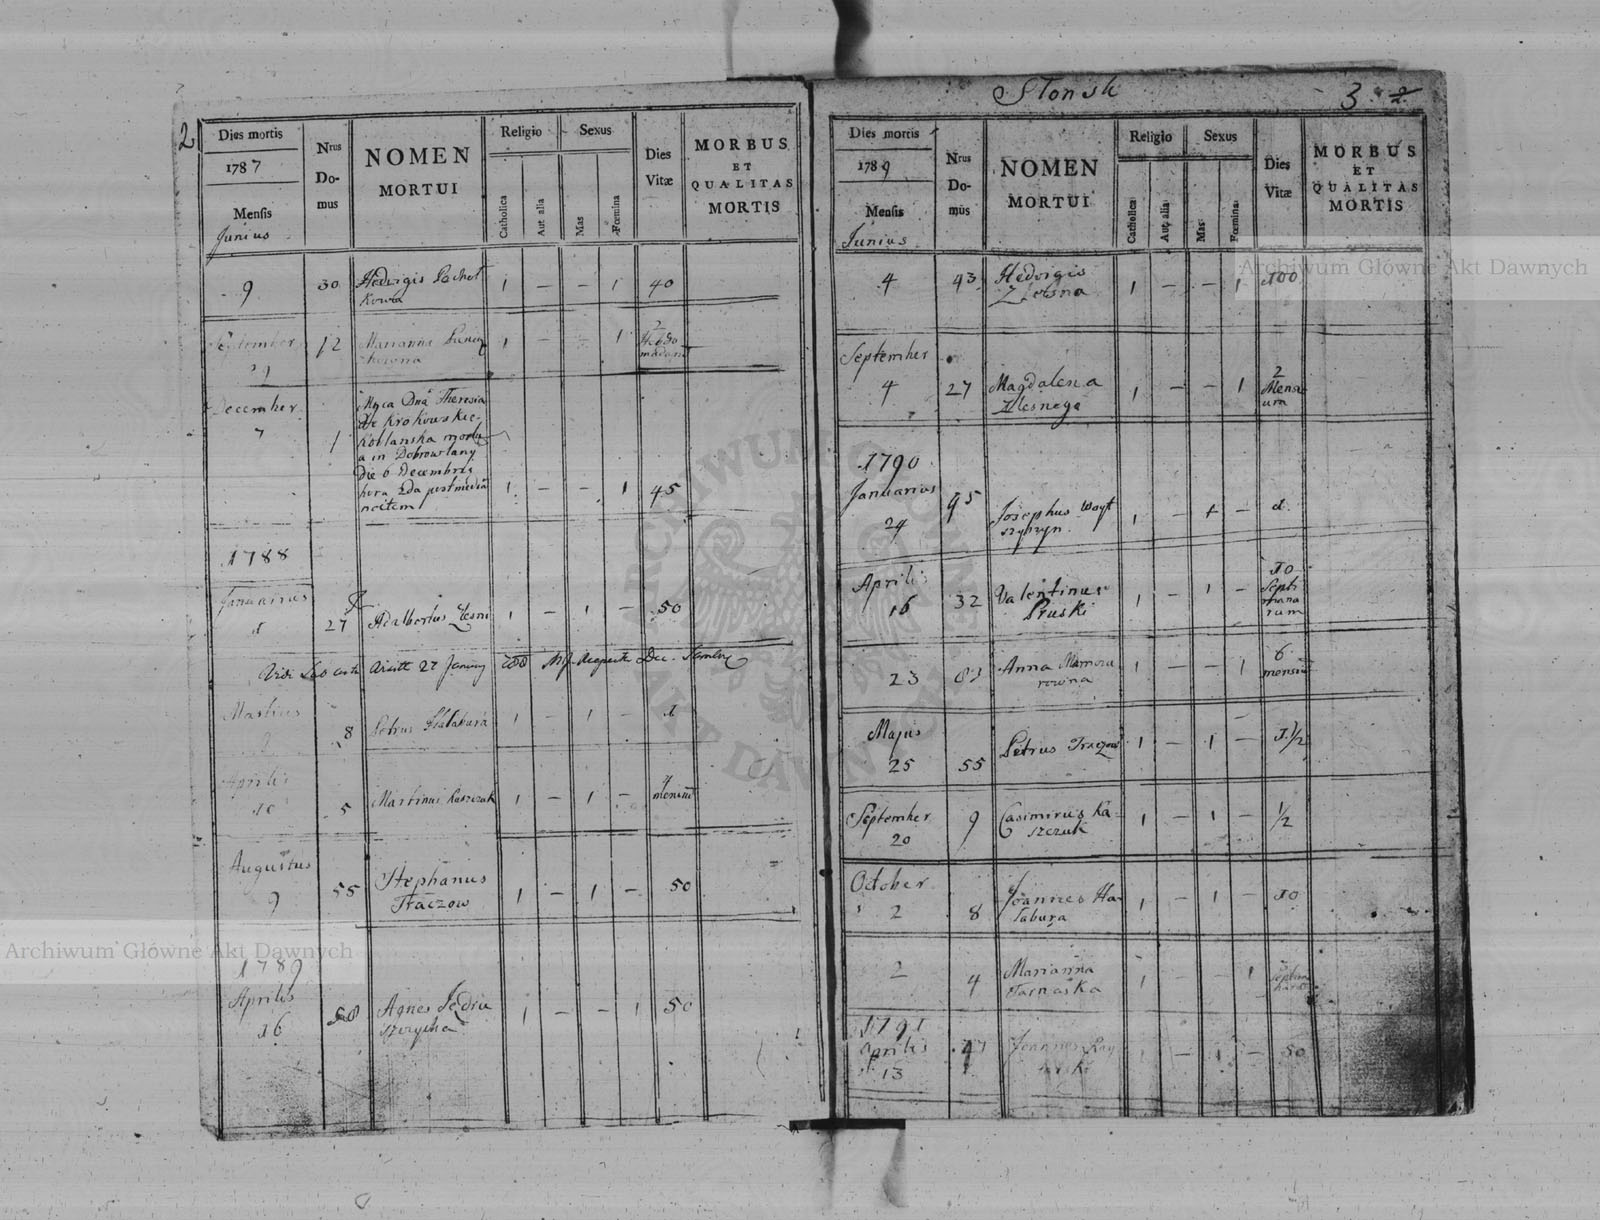 2
Dies mortis
1787
Mensis
Junius
Nrus
Do-
mus
NOMEN
MORTUI
Religio
Catholica
Aut alia
Sexus
Mas
Fœmina
Dies
Vitæ
MORBUS
ET
QUALITAS
MORTIS
9 30 Hedvigis 1 — — 1 40
kowa
September 12 Marianna 1 — — 1 2
Hebdo
madarum
December
7 1
Mgca Dna Theresia
de Krokowskie
Koblanska mortu
a in Dobrowlany
Die 6 Decembris
hora 2da post mediā
noctem 1 — — 1 45
1788
Januarius
1 27 Adalbertus Lesni 1 — 1 — 50
Martius
8 Petrus 1 — 1 — 1
Aprilis
10 5 Martinus Kaszczuk 1 — 1 — 4
mensiū
Augustus
9 55 Stephanus
Tkaczow 1 — 1 — 50
1789
Aprilis
16 58 Agnes Jedru
szczycha 1 — — 1 50
Stonsk
3 2
Dies mortis
1789
Mensis
Junius
Nrus
Do-
mus
NOMEN
MORTUI
Religio
Catholica
Aut alia
Sexus
Mas
Fœmina
Dies
Vitæ
MORBUS
ET
QUALITAS
MORTIS
4 43 Hedvigis
Zlesna 1 — — 1 100
September
4 27 Magdalena
Zlesnego 1 — — 1 2
Mens
ium
1790
Januarius
24 95 Josephus Woyt
szyszyn 1 — 1 — 1
Aprilis
16 32 Valentinus
Pruski 1 — 1 — 10
Septi
mana
rum
23 83 Anna
rowna 1 — — 1 6
mensiū
Majus
25 55 Petrus Tkaczow 1 — 1 — 1 1/2
September
20 9 Casimirus Ka-
szczuk 1 — 1 — 1/2
October
2 8 Joannes Ha-
labura 1 — 1 — 10
2 4 Marianna
Tarnaska 1 — — 1
1791
Aprilis
13 47 Joannes 1 — 1 — 50
Archiwum Główne Akt Dawnych
Archiwum Główne Akt Dawnych
ARCHIWUM GŁÓWNE
AKT DAWNYCH